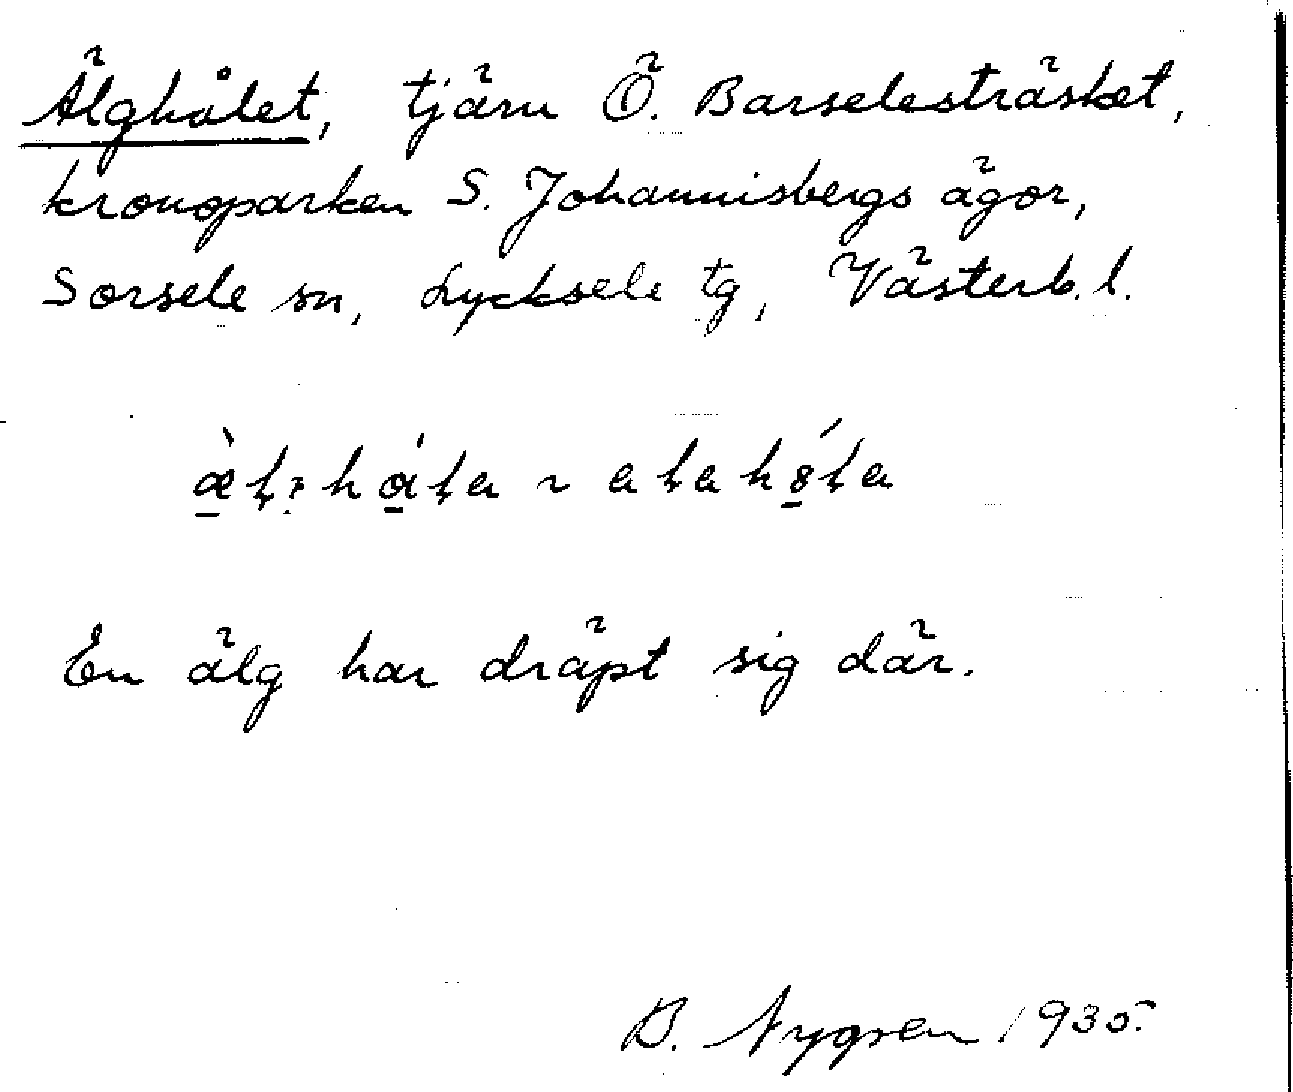 Älghålet, tjärn Ö. Barselesträsket,
kronoparken S. Johannisbergs ägor,
Sorsele sn, Lycksele tg, Västerb. l.
En älg har dräpt sig där.
B. Nygren 1935.